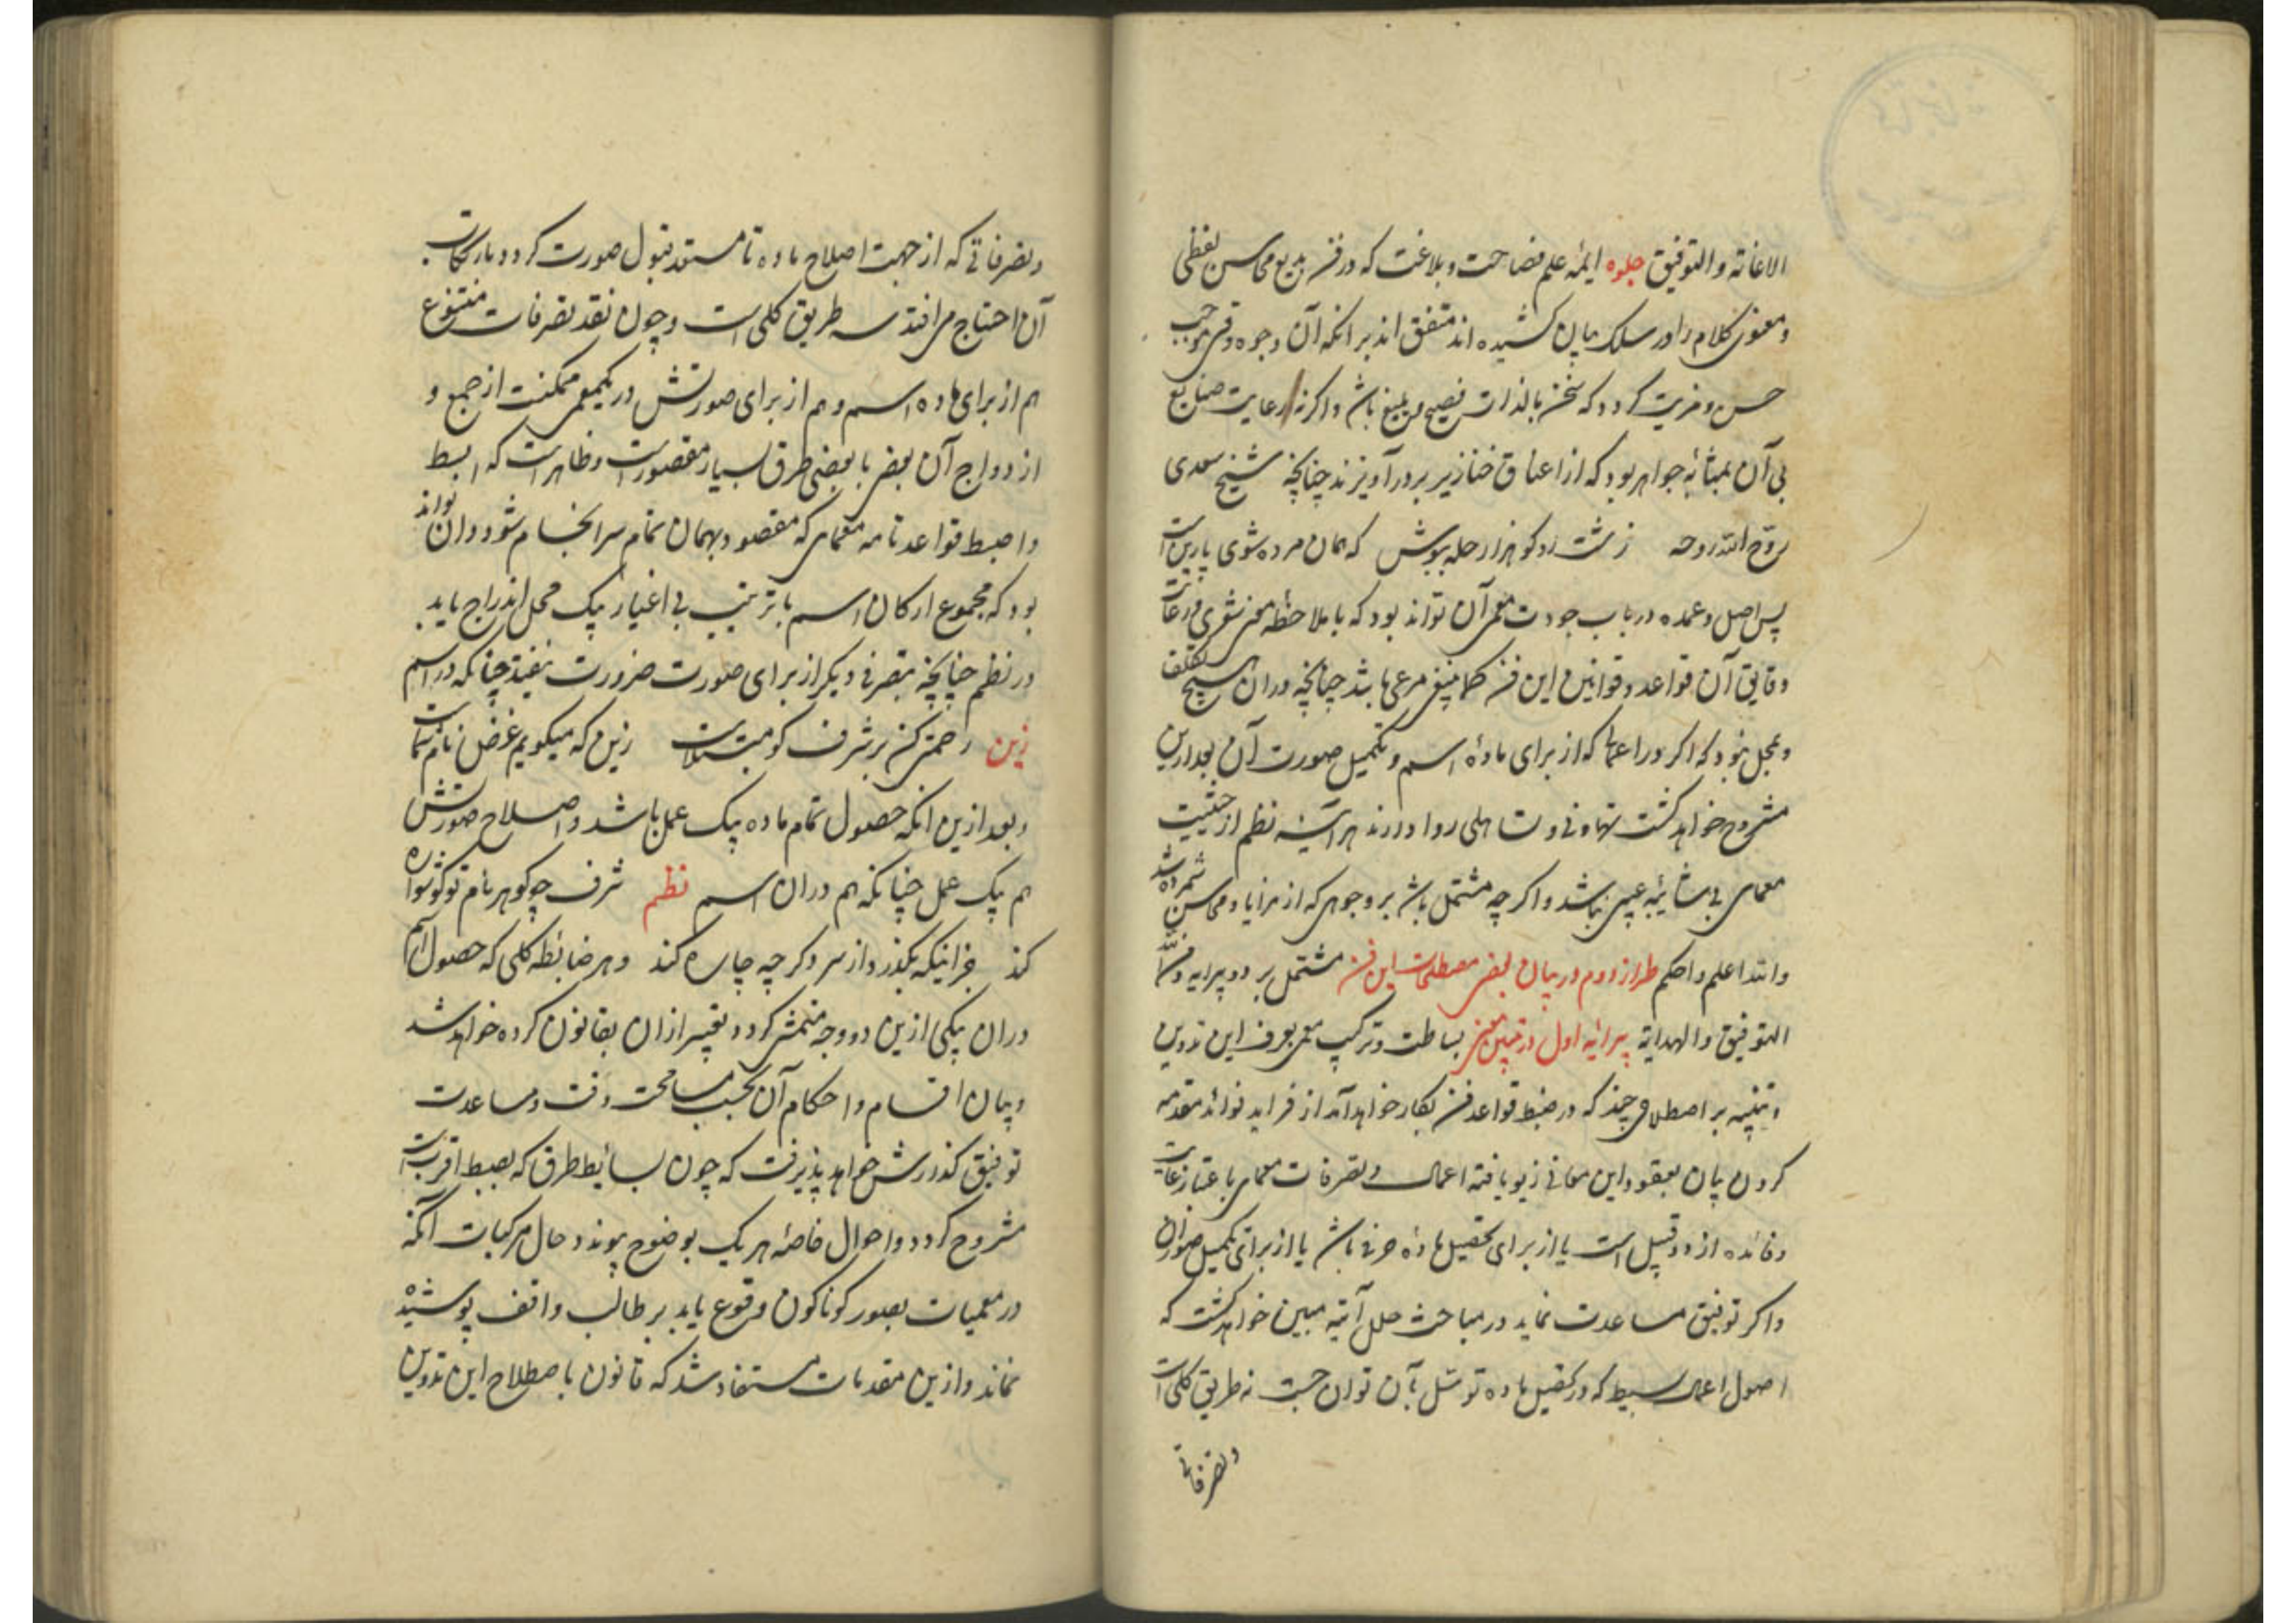 الاعانة والتوفیق جلوه ایمهٔ علم فصاحت و بلاغت که در فن بدیع محاسن لفظی
و معنوی کلام را در سلک بیان کشیده اند متفق اند بر انکه آن وجوه وقتی موجب
حسن و مزیت کردد که سخن بالذات فصیح و بلیغ باشد واکر نه رعایت صنایع
بی آن بمثابهٔ جواهر بود که از اعناق خنازیر بردر آویزند چنانچه شیخ سعدی
روح الله روحه زشت رو کو هزار حله بپوش که همان مرده شوی پارین است
پس اصل و عمده در باب جودت معمی آن تواند بود که با ملاحظهٔ معنی شعری و رعایت
دقایق آن قواعد و قوانین این فن کما ینبغی مرعی باشد چنانچه دران هیچ تکلف
و محل نبود که اکر در اعمال که از برای مادهٔ اسم و تکمیل صورت آن بعد ازین
مشروح خواهد کشت تهاونی و تساهلی روا دارند هر آینه نظم از حیثیت
معمای بی شایبهٔ عیبی نباشد واکر چه مشتمل باشد بر وجوهی که از مزایا و محاسن شمرده شد
والله اعلم واحکم طراز دوم در بیان بعضی مصطلحات این فن مشتمل بر دو پیرایه ومن الله
التوفیق والهدایة پیرایهٔ اول در تبیین معنی بساطت و ترکیب معمی بعرف این تدوین
و تنبیه بر اصطلاحی چند که در ضبط قواعد فن بکار خواهد آمد از فراید فوائد مقدمه
کردن بیان بعقود این معانی زیور یافته اعمال و تصرفات معمای باعتبار غایت
و فائده از دو قبیل است یا از برای تحصیل مادهٔ حرفی باشد یا از برای تکمیل صورت آن
واکر توفیق مساعدت نماید در مباحث حلل آتیه مبین خواهد کشت که
اصول اعمال بسیط که در تحصیل ماده توسل بآن توان جست نه طریق کلی است
و تصرفاتی
و تصرفاتی که از جهت اصلاح ماده تا مستعد قبول صورت کردد بارتکاب
آن احتیاج می افتد سه طریق کلی است و چون نقد تصرفات متنوع
هم از برای ماده اسم و هم از برای صورتش در یک معمی ممکنست از جمع و
ازدواج آن بعضی با بعضی طرق بسیار مقصورست و ظاهرست که ابسط
واضبط قواعد تامه معمای که مقصود بهمان تمام سرانجام شود وان تواند
بود که مجموع ارکان اسم با ترتیب بی اغیار بیک محل اندراج یابد
در نظم چنانچه بتصرفی دیکر از برای صورت ضرورت نیفتد چنانکه در اسم
زین رحمتی کن بر شرف کو مبتلاست زین که میکویم غرض نام شماست
و بعد ازین انکه حصول تمام ماده بیک عمل باشد و اصلاح صورتش
هم بیک عمل چنانکه هم دران اسم نظم شرف چو کوهر نام تو کوشواره
کند جز اینکه بکذرد از سر وکر چه چاره کند و هر ضابطه کلی که حصول اسم
دران بیکی ازین دو وجه متمشی کردد تعبیر ازان بقانون کرده خواهد شد
و بیان اقسام و احکام آن بحسب مسامحت وقت و مساعدت
توفیق کذارش خواهد پذیرفت که چون بسایط طرق که بضبط اقربست
مشروح کردد و احوال خاصهٔ هر یک بوضوح پیوندد حال مرکبات انکه
در معمیات بصور کوناکون وقوع یابد بر طالب واقف پوشیده
نماند و ازین مقدمات مستفاد شد که قانون باصطلاح این تدوین